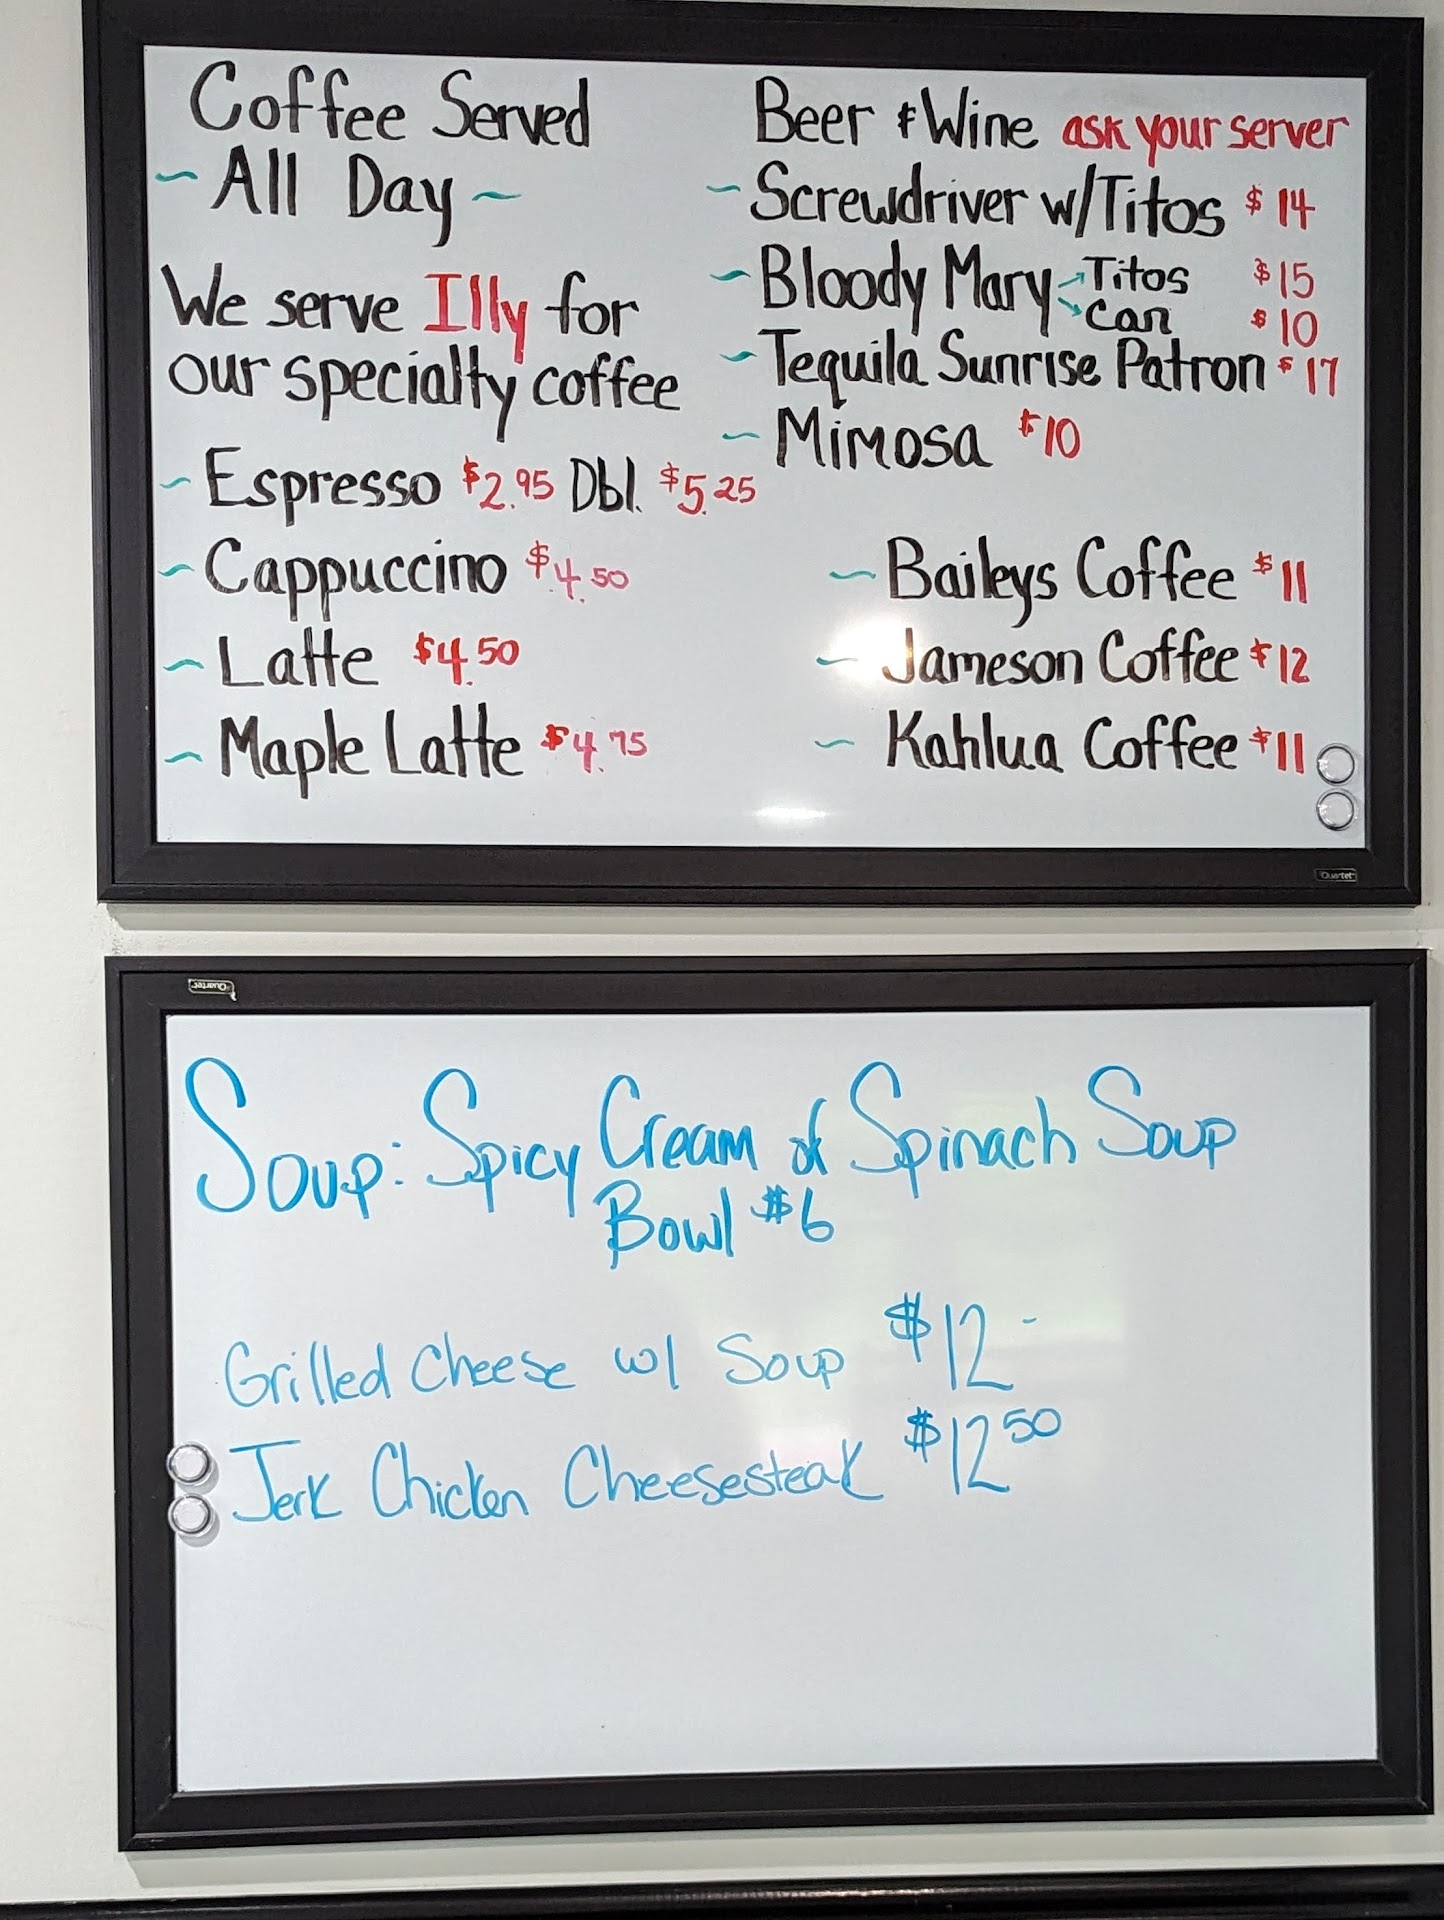 Coffee Served
~ All Day ~
We serve Illy for
our specialty coffee
~ Espresso $2.95 Dbl. $5.25
~ Cappuccino $4.50
~ Latte $4.50
~ Maple Latte $4.75
Beer & Wine ask your server
~ Screwdriver w/Titos $14
~ Bloody Mary → Titos $15
→ Can $10
~ Tequila Sunrise Patron $17
~ Mimosa $10
~ Baileys Coffee $11
~ Jameson Coffee $12
~ Kahlua Coffee $11
Quartet
Quartet
Soup: Spicy Cream of Spinach Soup
Bowl $6
Grilled Cheese w/ Soup $12-
Jerk Chicken Cheesesteak $12 50